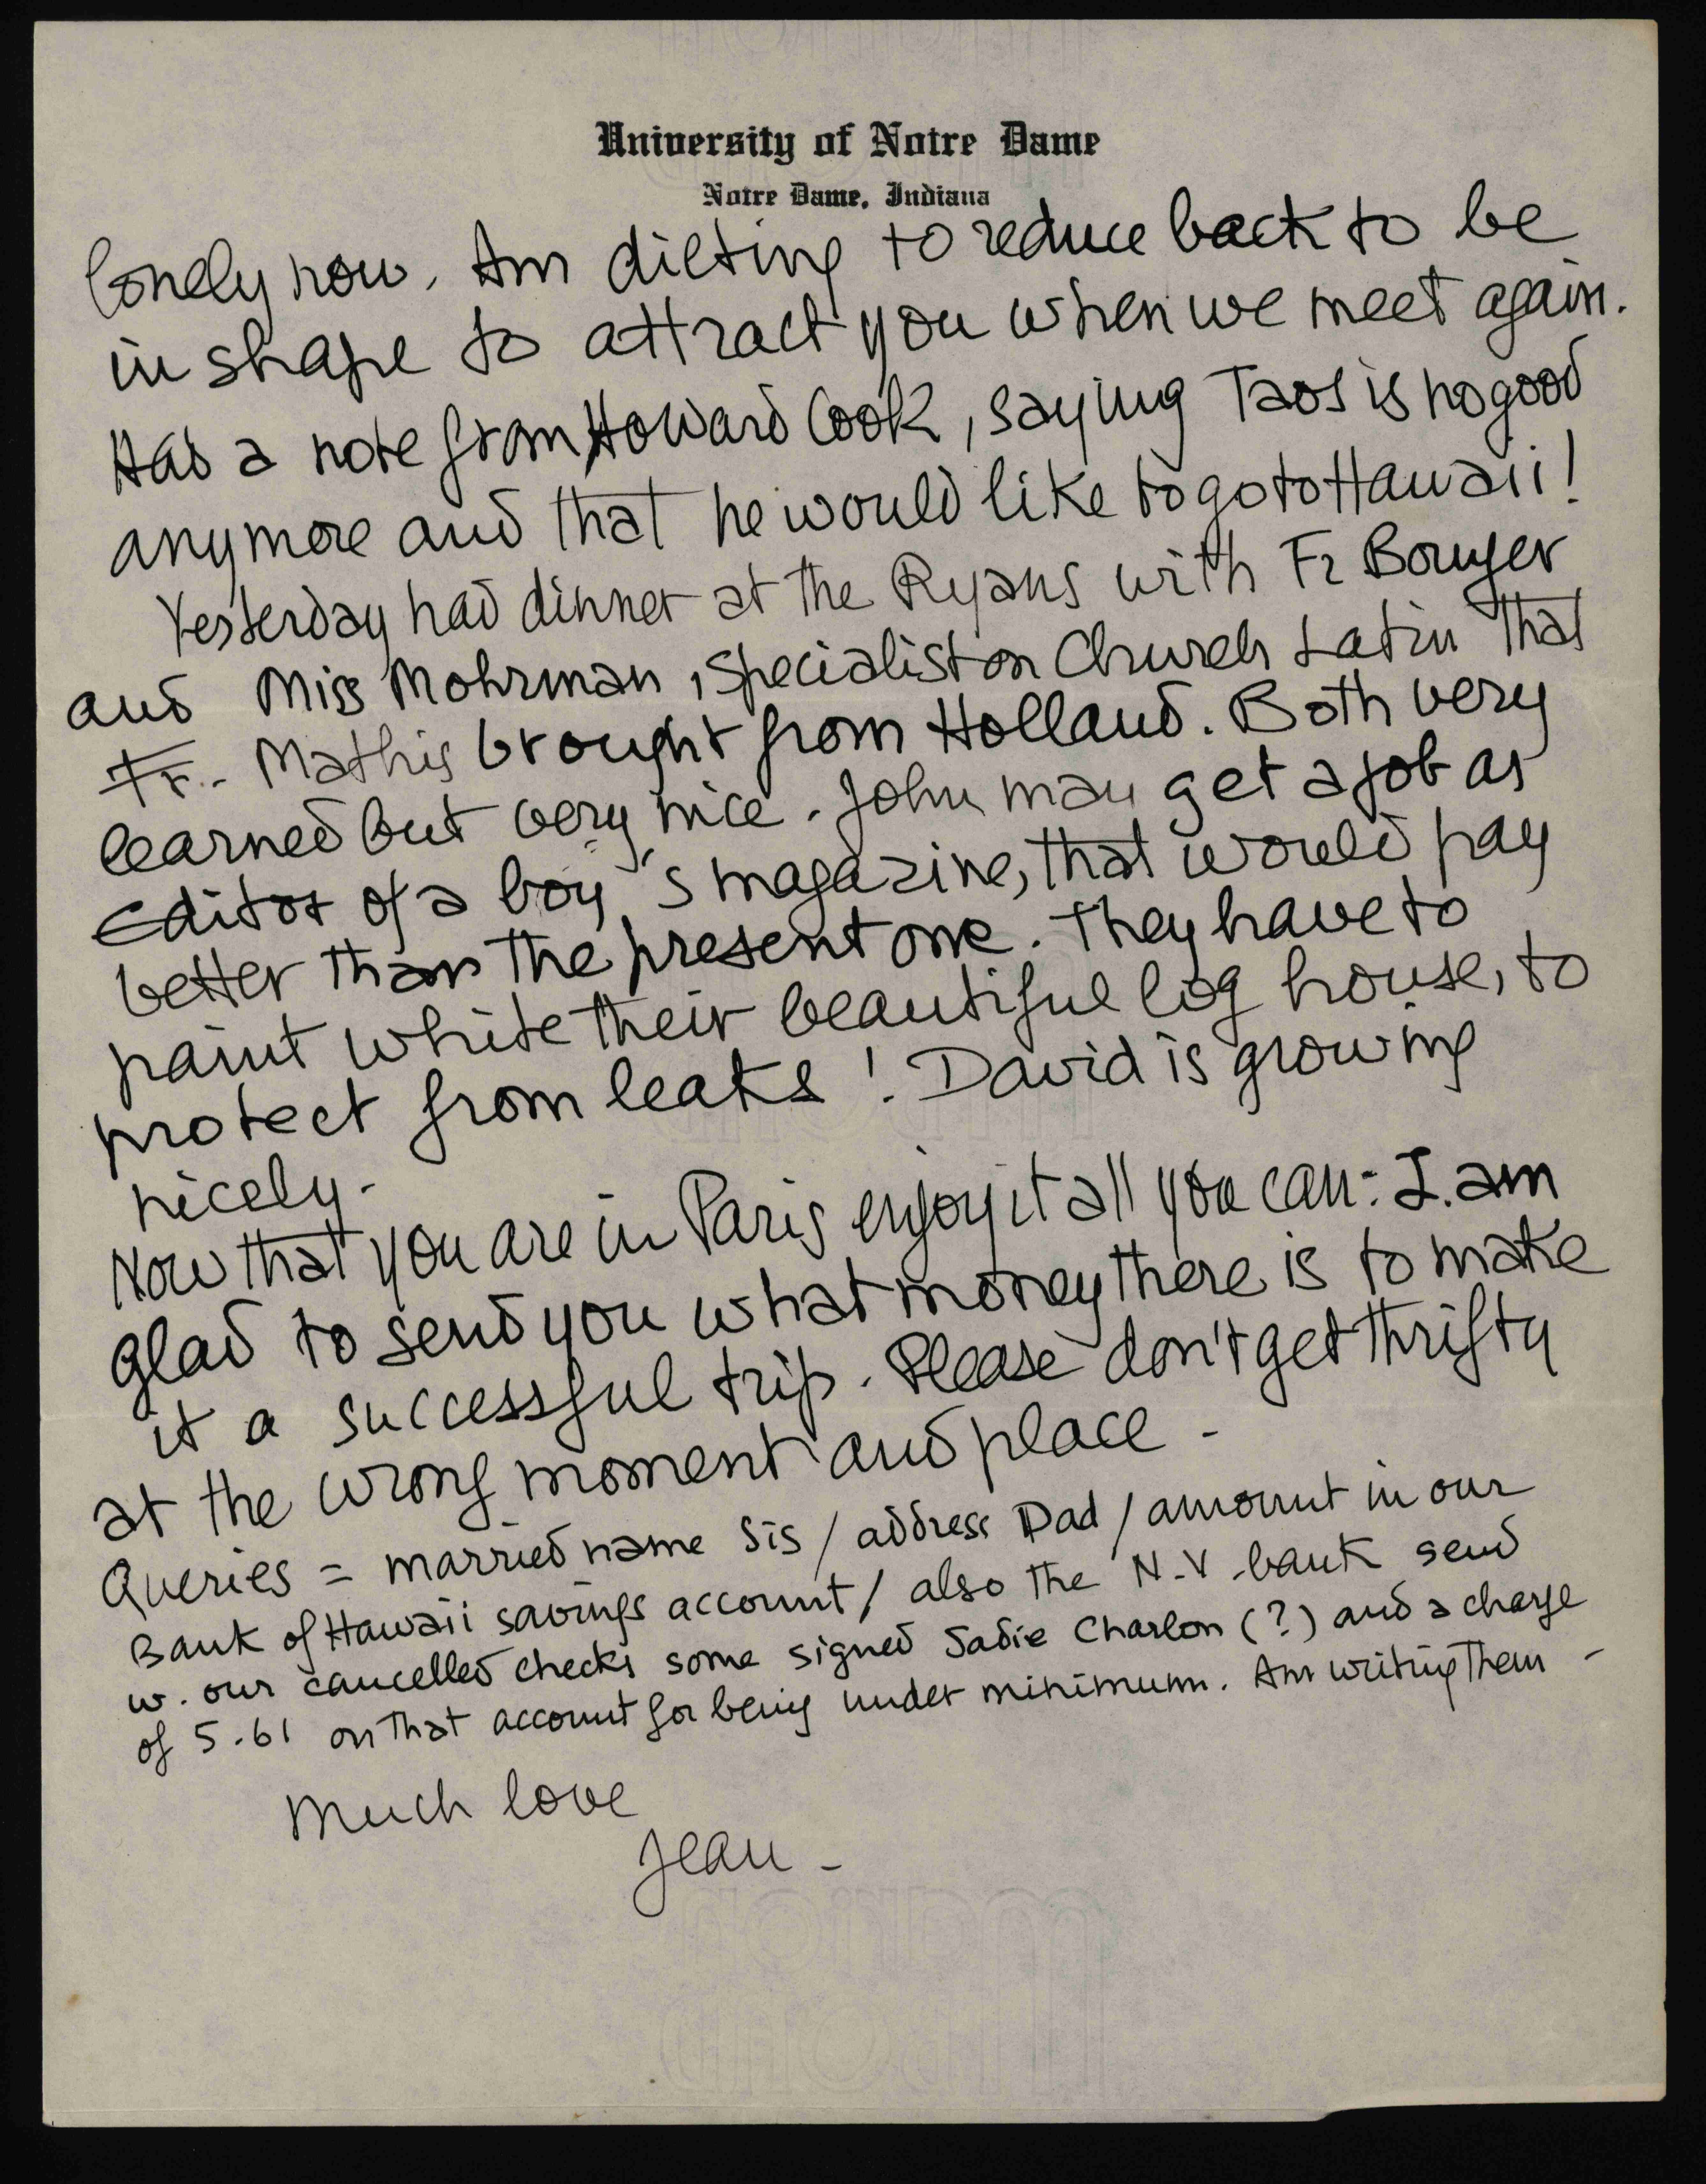 University of Notre Dame
Notre Dame, Indiana
lonely now. Am dieting to reduce back to be
in shape to attract you when we meet again.
Had a note from Howard Cook, saying Taos is no good
anymore and that he would like to go to Hawaii!
Yesterday had dinner at the Ryans with Fr Bouyer
and Miss Mohrman, specialist on Church Latin that
Fr. Mathis brought from Holland. Both very
learned but very nice. John may get a job as
Editor of a boy's magazine, that would pay
better than the present one. They have to
paint white their beautiful log house, to
protect from leaks! David is growing
nicely.
Now that you are in Paris enjoy it all you can: I am
glad to send you what money there is to make
it a successful trip. Please don't get thrifty
at the wrong moment and place -
Queries = married name Sis / address Dad / amount in our
Bank of Hawaii savings account / also the N.Y. bank send
w. our cancelled checks some signed Sadie Charlon (?) and a charge
of 5.61 on that account for being under minimum. Am writing them -
Much love
Jean -